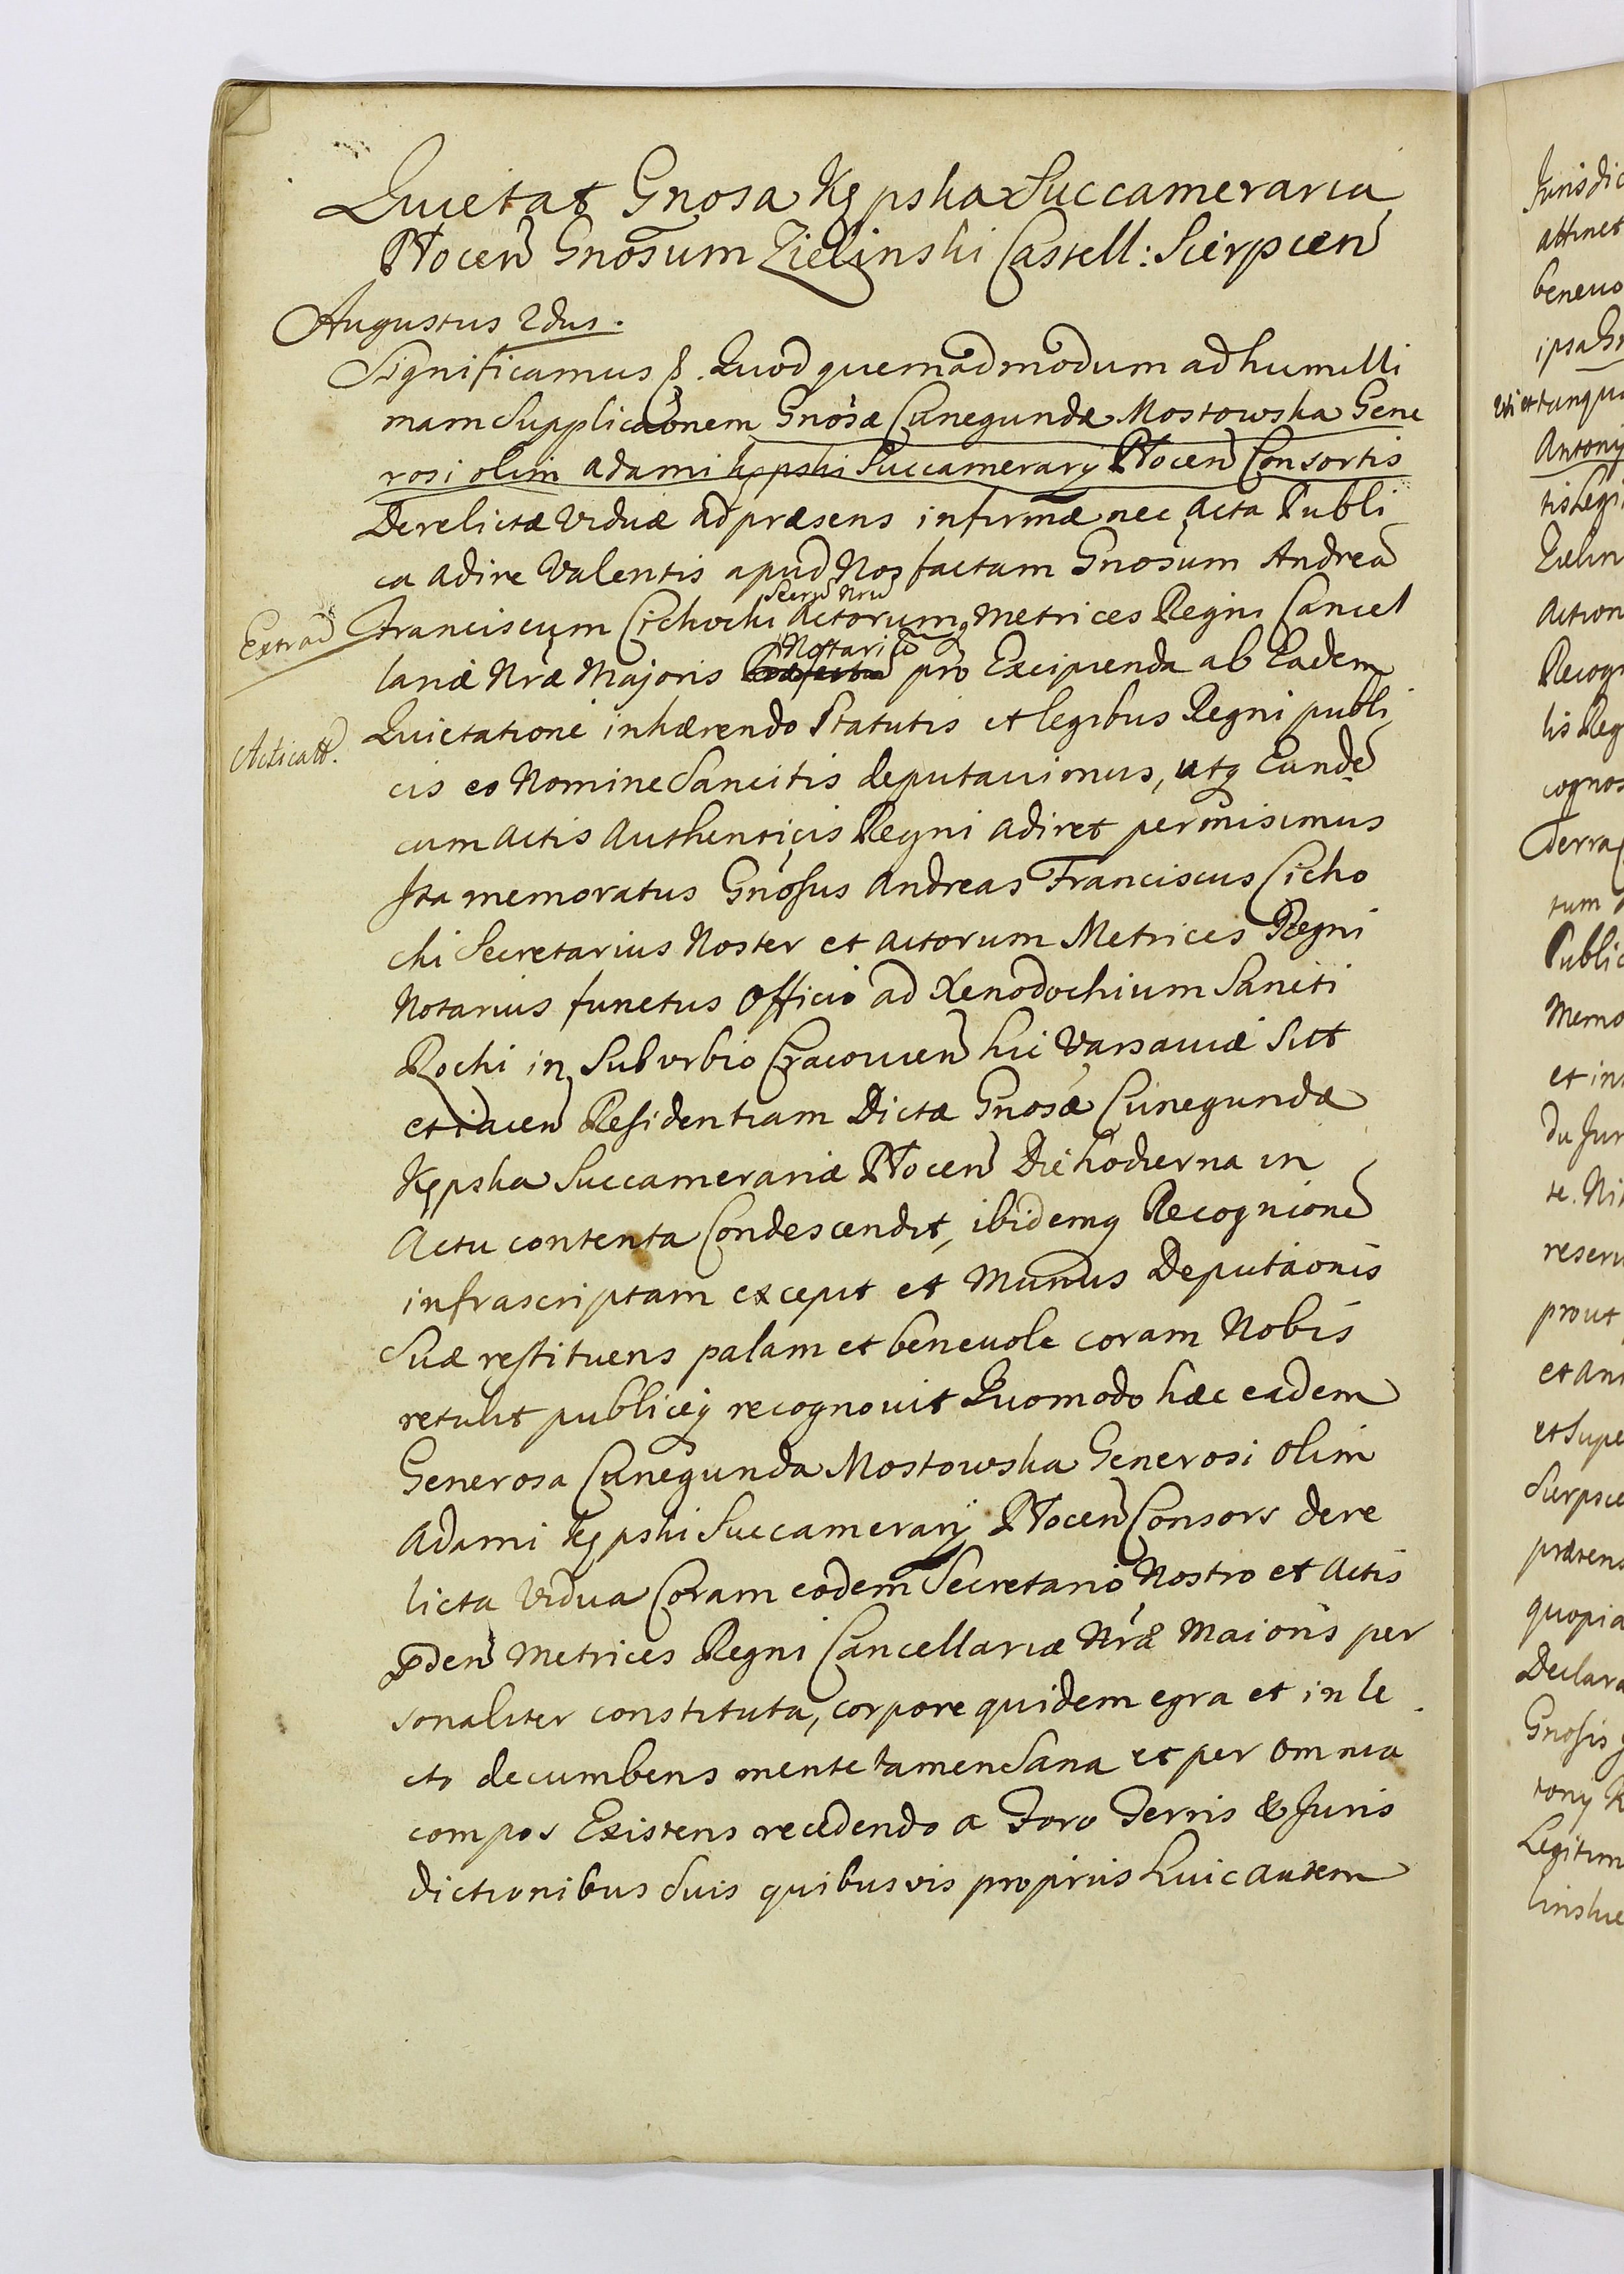 Quietat Gnosa Kępska Succameraria
Płocen Gnosum Zielinski Castell: Sierpcen
Augustus 2dus.
Significamus &. Quod quemadmodum ad humilli
mam Supplicaonem Gnosæ Cunegundæ Mostowska Gene
rosi olim Adami Kępski Succamerarij Płocen Consortis
Derelictæ Viduæ ad præsens infirmæ nec Acta Publi
ca adire Valentis apud Nos factam Gnosum Andrea
Secrm Nrm
Extrad Franciscum Cichocki Actorum Metrices Regni Cancel
Nottariu
lariæ Nræ Majoris pro Excipienda ab Eadem
Acticatt. Quietatione inhærendo Statutis et legibus Regni publi
cis eo Nomine Sancitis deputavimus, utq Eunde
cum Actis Authenticis Regni adiret permisimus
Ita memoratus Gnosus Andreas Franciscus Cicho
cki Secretarius Noster et Actorum Metrices Regni
Notarius functus Officio ad Xenodochium Sancti
Rochi in Suburbio Cracovien hic Varsaviæ Sitt
et iacen Residentiam Dictæ Gnosæ Cunegundæ
Kępska Succamerariæ Płocen Die hodierna in
Actu contenta Condescendit, ibidemq Recognione
infrascriptam excepit et Munus Deputaonis
Suæ restituens palam et benevole coram Nobis
retulit publiceq recognovit Quomodo hæc eadem
Generosa Cunegunda Mostowska Generosi Olim
Adami Kępski Succamerarij Płocen Consors dere
licta Vidua Coram eodem Secretario Nostro et Actis
pnden Metrices Regni Cancellariæ Nræ Maioris per
sonaliter constituta, corpore quidem egra et in le
cto decumbens mente tamen Sana et per Omnia
compos Existens recedendo a Foro Terris & Juris
dictionibus Suis quibusvis proprijs huic autem
Jurisdic
attinet
benevo
ipsa Gn
uti et tanqua
Antonij
tis Legi
Zielin
Action
Recogn
lis Reg
cognos
Terra
tum
Public
Memo
et in
du Jur
te. Ni
reserv
prout
et Ann
et Supe
Sierpce
præsens
quopia
Declara
Gnosis
tonij K
Legitim
linskie